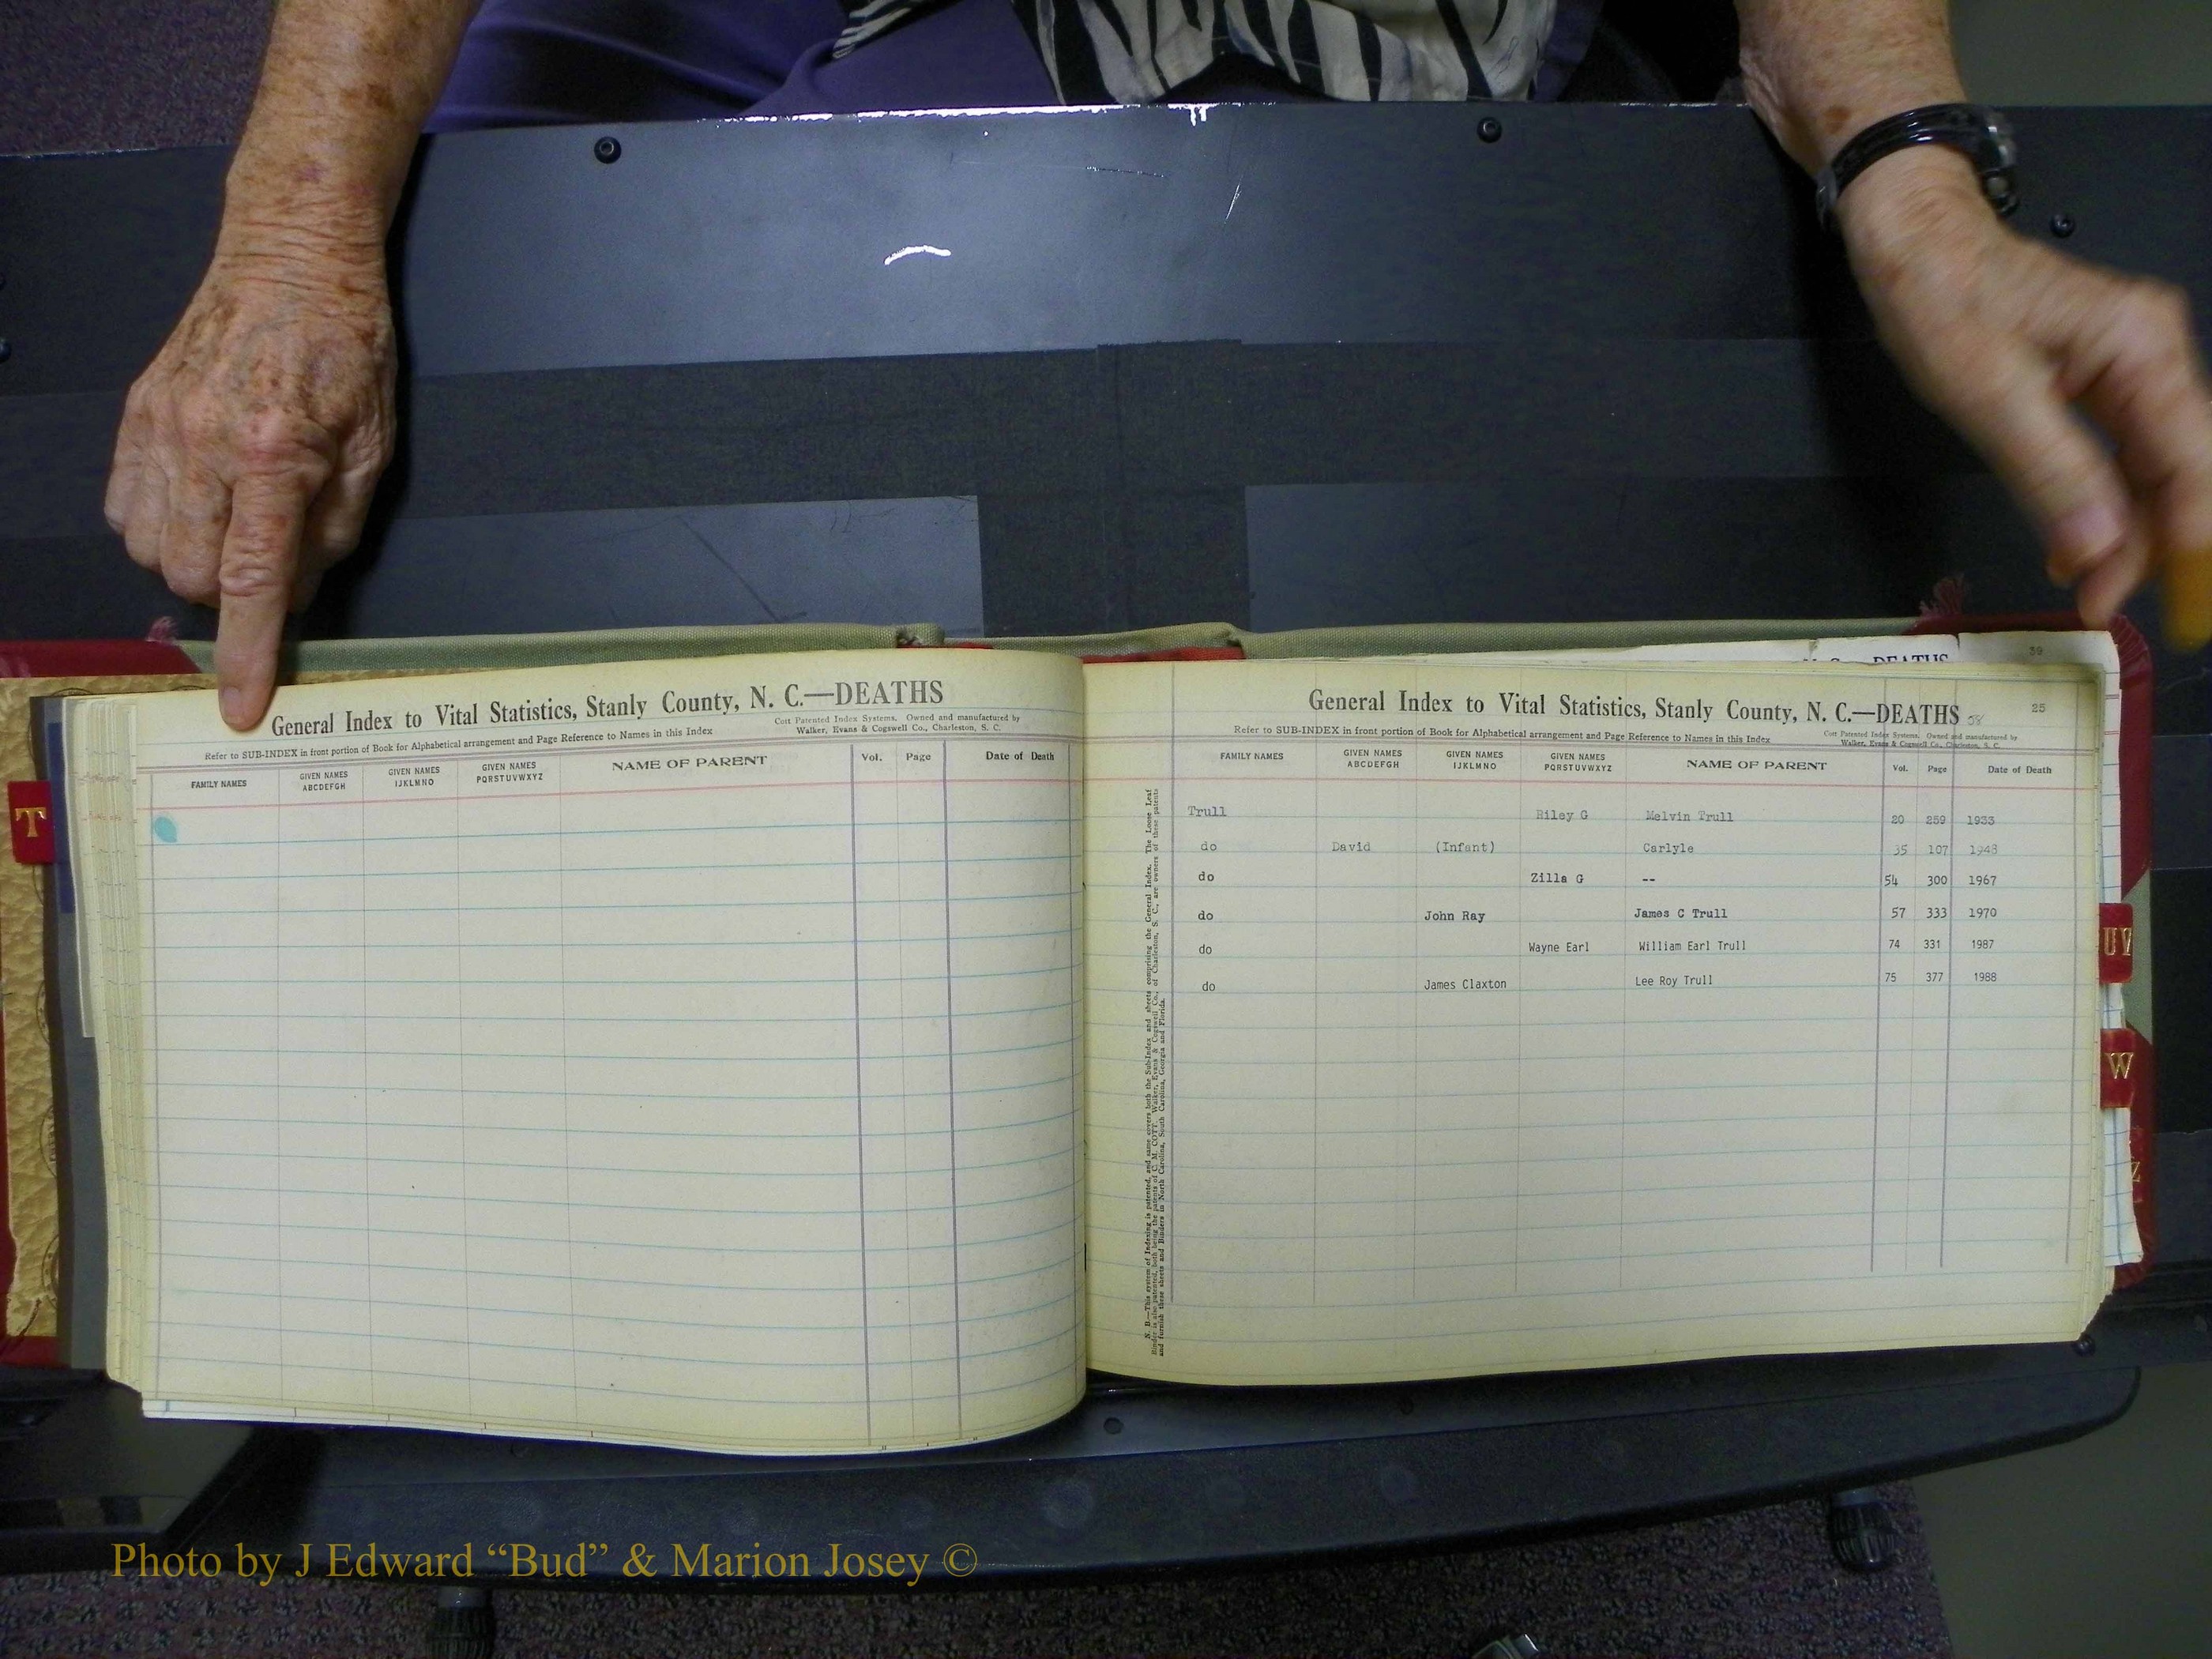 General Index to Vital Statistics, Stanly County, N. C.—DEATHS
Refer to SUB-INDEX in front portion of Book for Alphabetical arrangement and Page Reference to Names in this Index
Cott Patented Index Systems. Owned and manufactured by
Walker, Evans & Cogswell Co., Charleston, S. C.
FAMILY NAMES GIVEN NAMES ABCDEFGH GIVEN NAMES IJKLMNO GIVEN NAMES PQRSTUVWXYZ NAME OF PARENT Vol. Page Date of Death
T
DEATHS
39
General Index to Vital Statistics, Stanly County, N. C.—DEATHS
25
Refer to SUB-INDEX in front portion of Book for Alphabetical arrangement and Page Reference to Names in this Index
Cott Patented Index Systems. Owned and manufactured by
Walker, Evans & Cogswell Co., Charleston, S. C.
FAMILY NAMES GIVEN NAMES ABCDEFGH GIVEN NAMES IJKLMNO GIVEN NAMES PQRSTUVWXYZ NAME OF PARENT Vol. Page Date of Death
Trull Riley G Melvin Trull 20 259 1933
do David (Infant) Carlyle 35 107 1948
do Zilla G -- 54 300 1967
do John Ray James C Trull 57 333 1970
do Wayne Earl William Earl Trull 74 331 1987
do James Claxton Lee Roy Trull 75 377 1988
N. B.—This system of Indexing is patented, and same covers both the Sub-Index and sheets comprising the General Index. The Loose Leaf
Binder is also patented, both being the patents of C. M. COTT. Walker, Evans & Cogswell Co., of Charleston, S. C., are owners of these patents
and furnish these sheets and Binders in North Carolina, South Carolina, Georgia and Florida.
UV
W
Z
Photo by J Edward “Bud” & Marion Josey ©